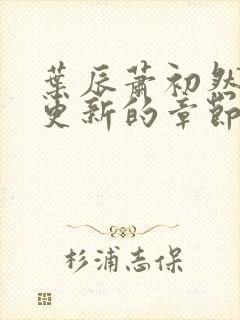 葉辰蕭初然
更新的章節
杉浦志保